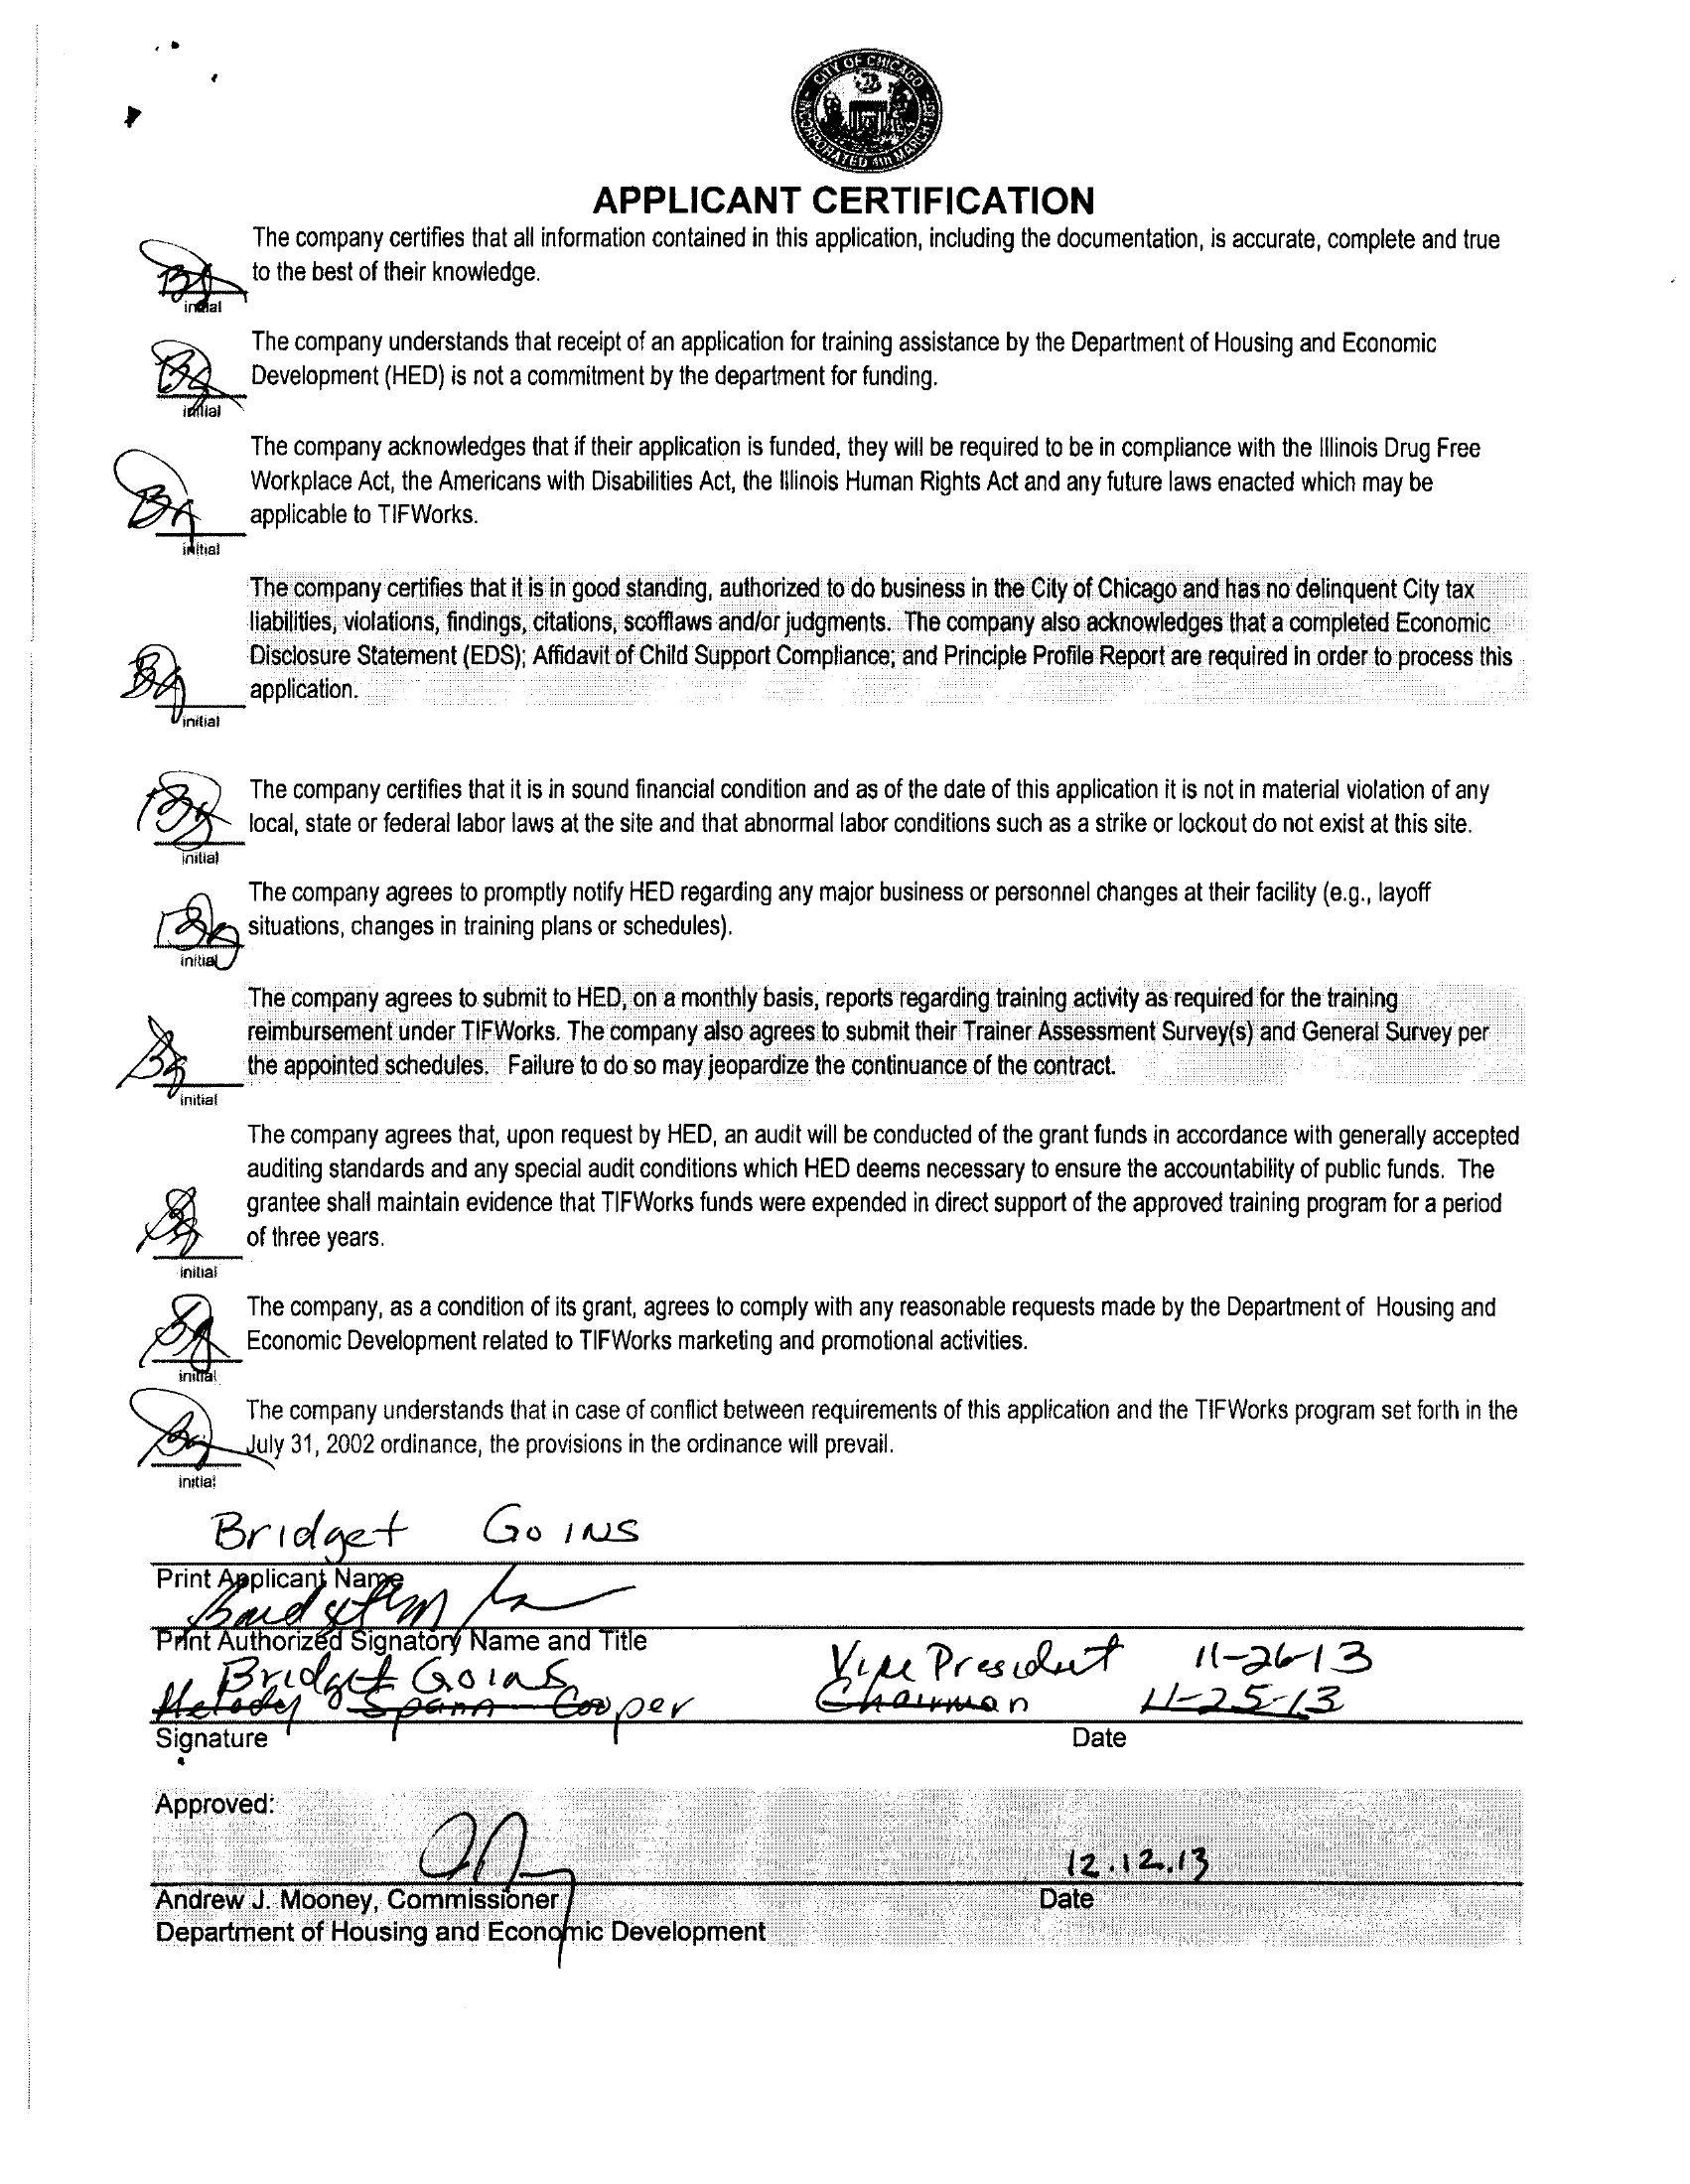 CITY OF CHICAGO
INCORPORATED 4th MARCH 1837
APPLICANT CERTIFICATION
The company certifies that all information contained in this application, including the documentation, is accurate, complete and true
to the best of their knowledge.
BG
initial
The company understands that receipt of an application for training assistance by the Department of Housing and Economic
Development (HED) is not a commitment by the department for funding.
BG
initial
The company acknowledges that if their application is funded, they will be required to be in compliance with the Illinois Drug Free
Workplace Act, the Americans with Disabilities Act, the Illinois Human Rights Act and any future laws enacted which may be
applicable to TIFWorks.
BG
initial
The company certifies that it is in good standing, authorized to do business in the City of Chicago and has no delinquent City tax
liabilities, violations, findings, citations, scofflaws and/or judgments. The company also acknowledges that a completed Economic
Disclosure Statement (EDS); Affidavit of Child Support Compliance; and Principle Profile Report are required in order to process this
application.
BG
initial
The company certifies that it is in sound financial condition and as of the date of this application it is not in material violation of any
local, state or federal labor laws at the site and that abnormal labor conditions such as a strike or lockout do not exist at this site.
BG
initial
The company agrees to promptly notify HED regarding any major business or personnel changes at their facility (e.g., layoff
situations, changes in training plans or schedules).
BG
initial
The company agrees to submit to HED, on a monthly basis, reports regarding training activity as required for the training
reimbursement under TIFWorks. The company also agrees to submit their Trainer Assessment Survey(s) and General Survey per
the appointed schedules. Failure to do so may jeopardize the continuance of the contract.
BG
initial
The company agrees that, upon request by HED, an audit will be conducted of the grant funds in accordance with generally accepted
auditing standards and any special audit conditions which HED deems necessary to ensure the accountability of public funds. The
grantee shall maintain evidence that TIFWorks funds were expended in direct support of the approved training program for a period
of three years.
BG
initial
The company, as a condition of its grant, agrees to comply with any reasonable requests made by the Department of Housing and
Economic Development related to TIFWorks marketing and promotional activities.
BG
initial
The company understands that in case of conflict between requirements of this application and the TIFWorks program set forth in the
July 31, 2002 ordinance, the provisions in the ordinance will prevail.
BG
initial
Bridget Goins
Print Applicant Name
Print Authorized Signatory Name and Title
Bridget Goins Vice President 11-26-13
Melody Spann Cooper Chairman 11-25-13
Signature Date
Approved:
12.12.13
Andrew J. Mooney, Commissioner Date
Department of Housing and Economic Development